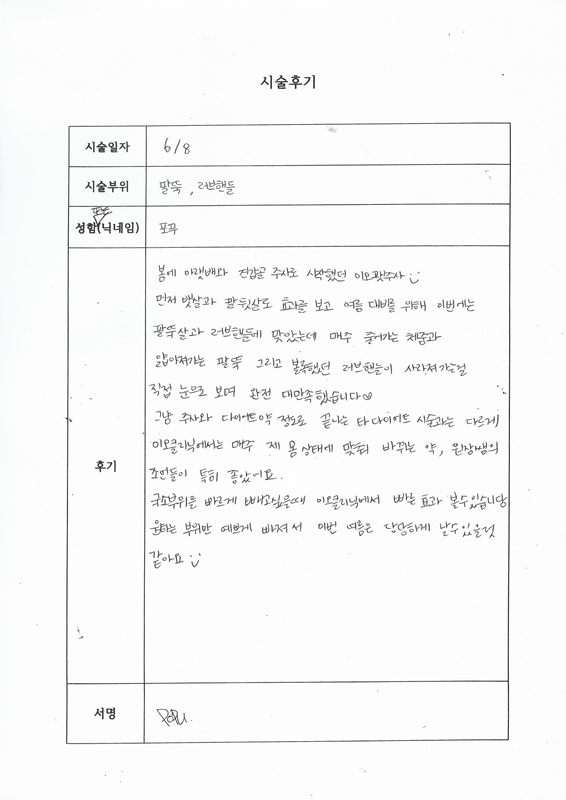 시술후기
시술일자 6/8
시술부위 팔뚝, 러브핸들
성함(닉네임) 포포
후기
봄에 아랫배와 견갑골 주사로 시작했던 이오팻주사
먼저 뱃살과 팔뒷살로 효과를 보고 여름 대비를 위해 이번에는
팔뚝살과 러브핸들에 맞았는데 매주 줄어가는 체중과
얇아져가는 팔뚝 그리고 볼록했던 러브핸들이 사라져가는걸
직접 눈으로 보며 완전 대만족했습니다♡
그냥 주사와 다이어트약 정도로 끝나는 타 다이어트 시술과는 다르게
이오클리닉에서는 매주 제 몸 상태에 맞춰 바뀌는 약, 원장쌤의
조언들이 특히 좋았어요.
국소부위를 빠르게 빼고싶을때 이오클리닉에서 빠른 효과 볼수있습니당
원하는 부위만 예쁘게 빠져서 이번 여름은 당당하게 날수있을것
같아요
서명 POPU.